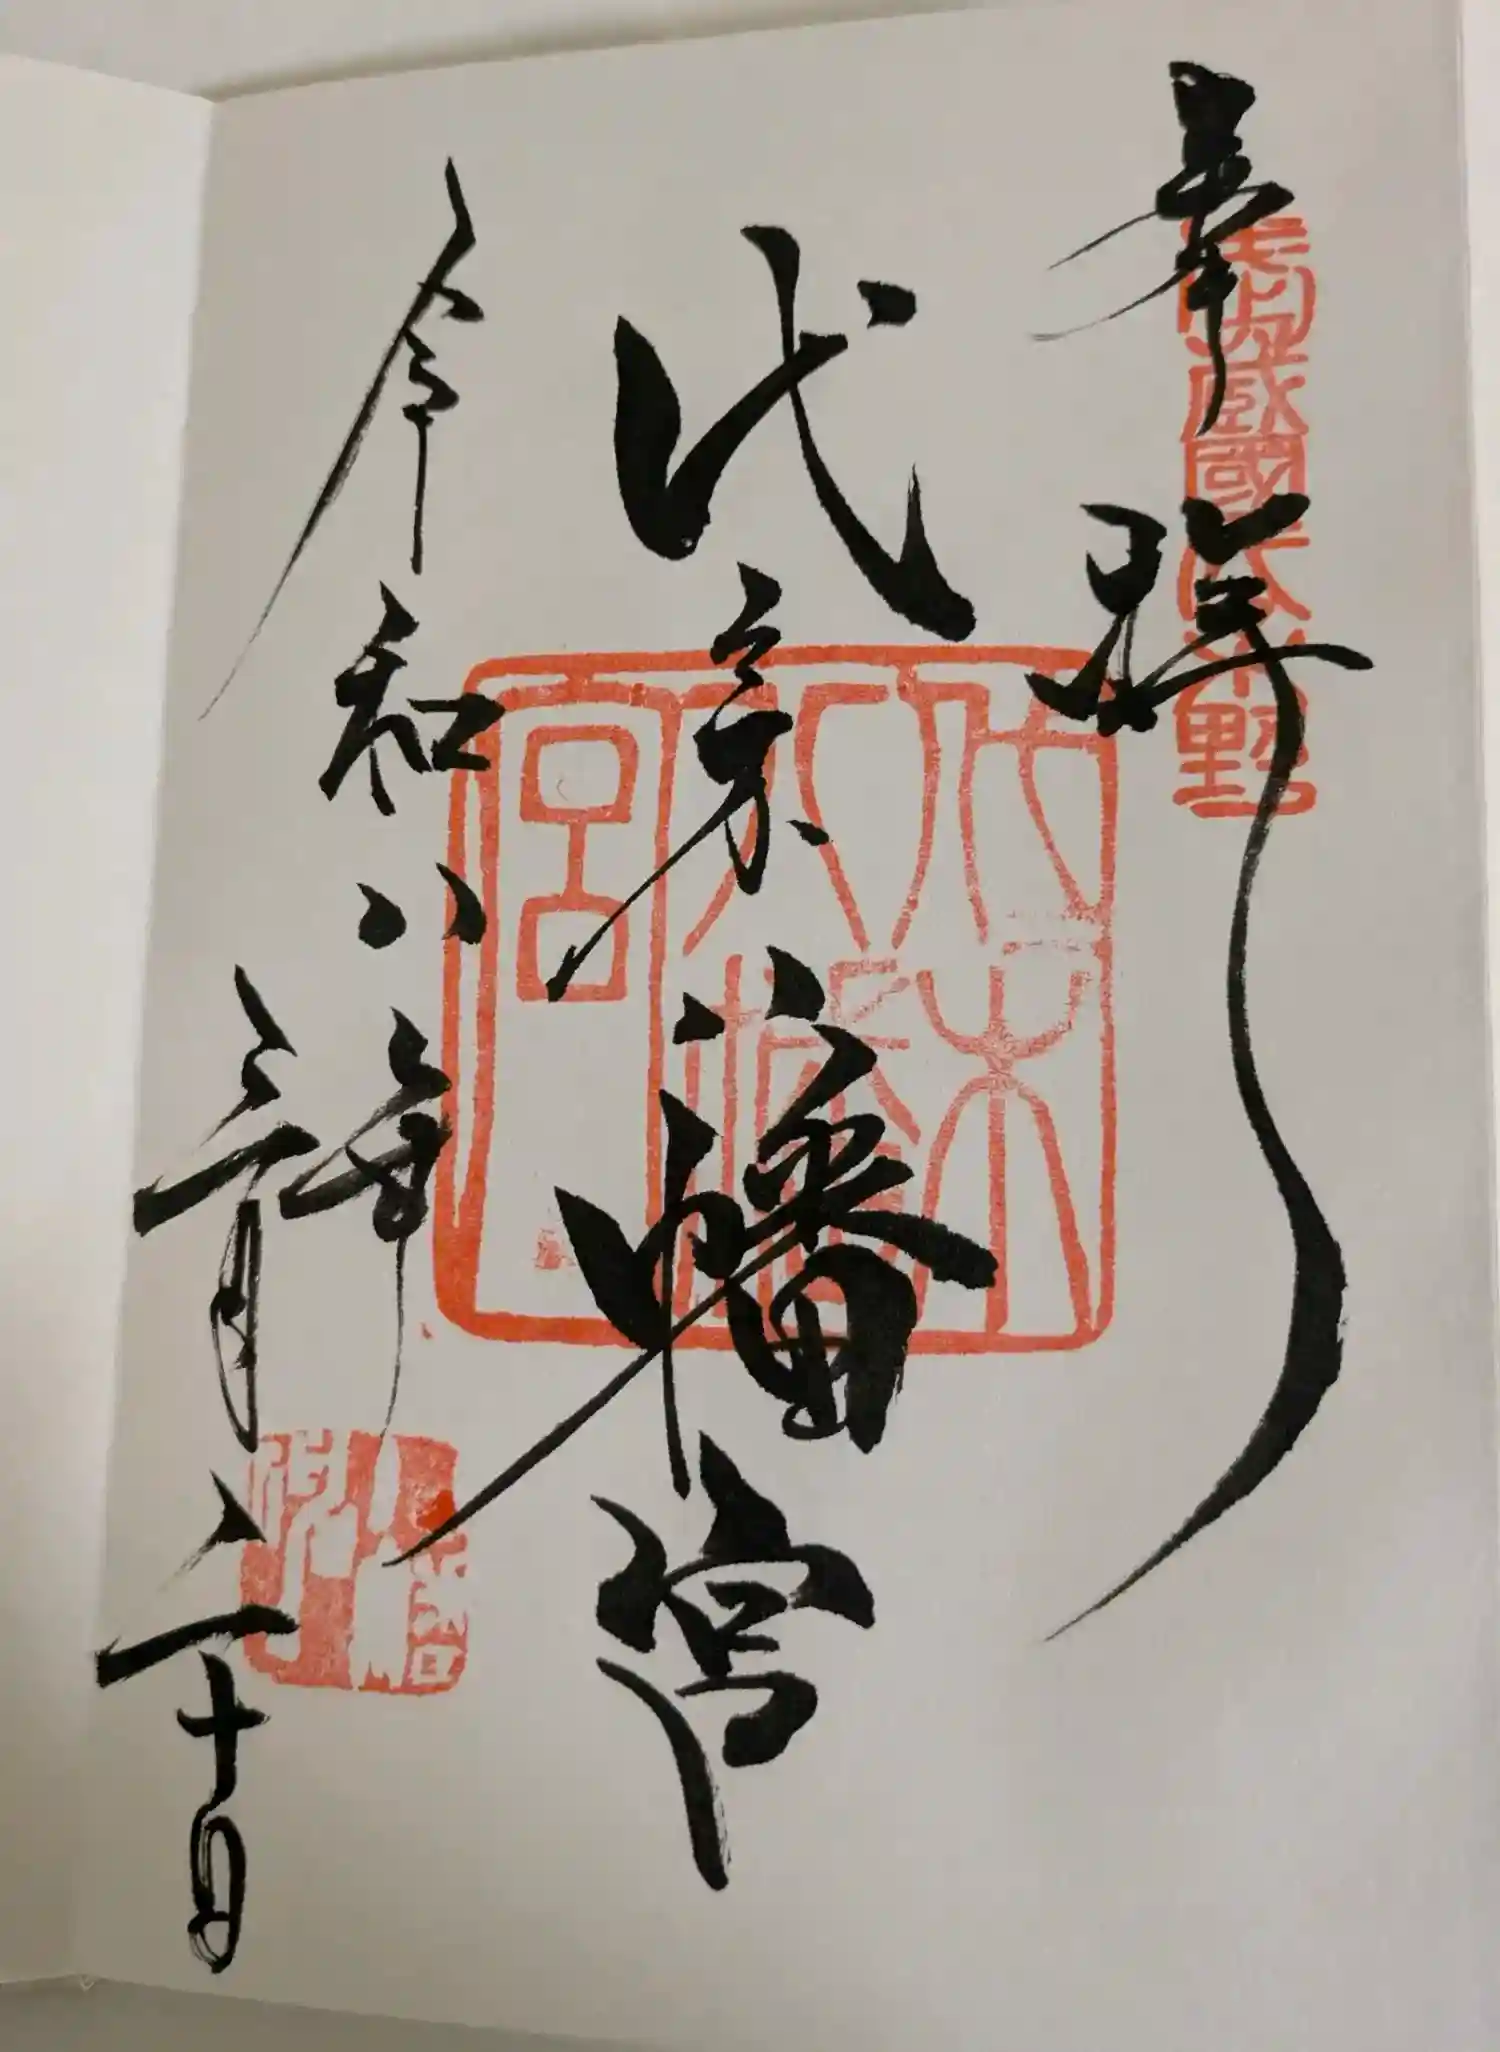 奉拝
武蔵國代々木野
代々木八幡宮
代々木八幡宮
令和八年三月二十日